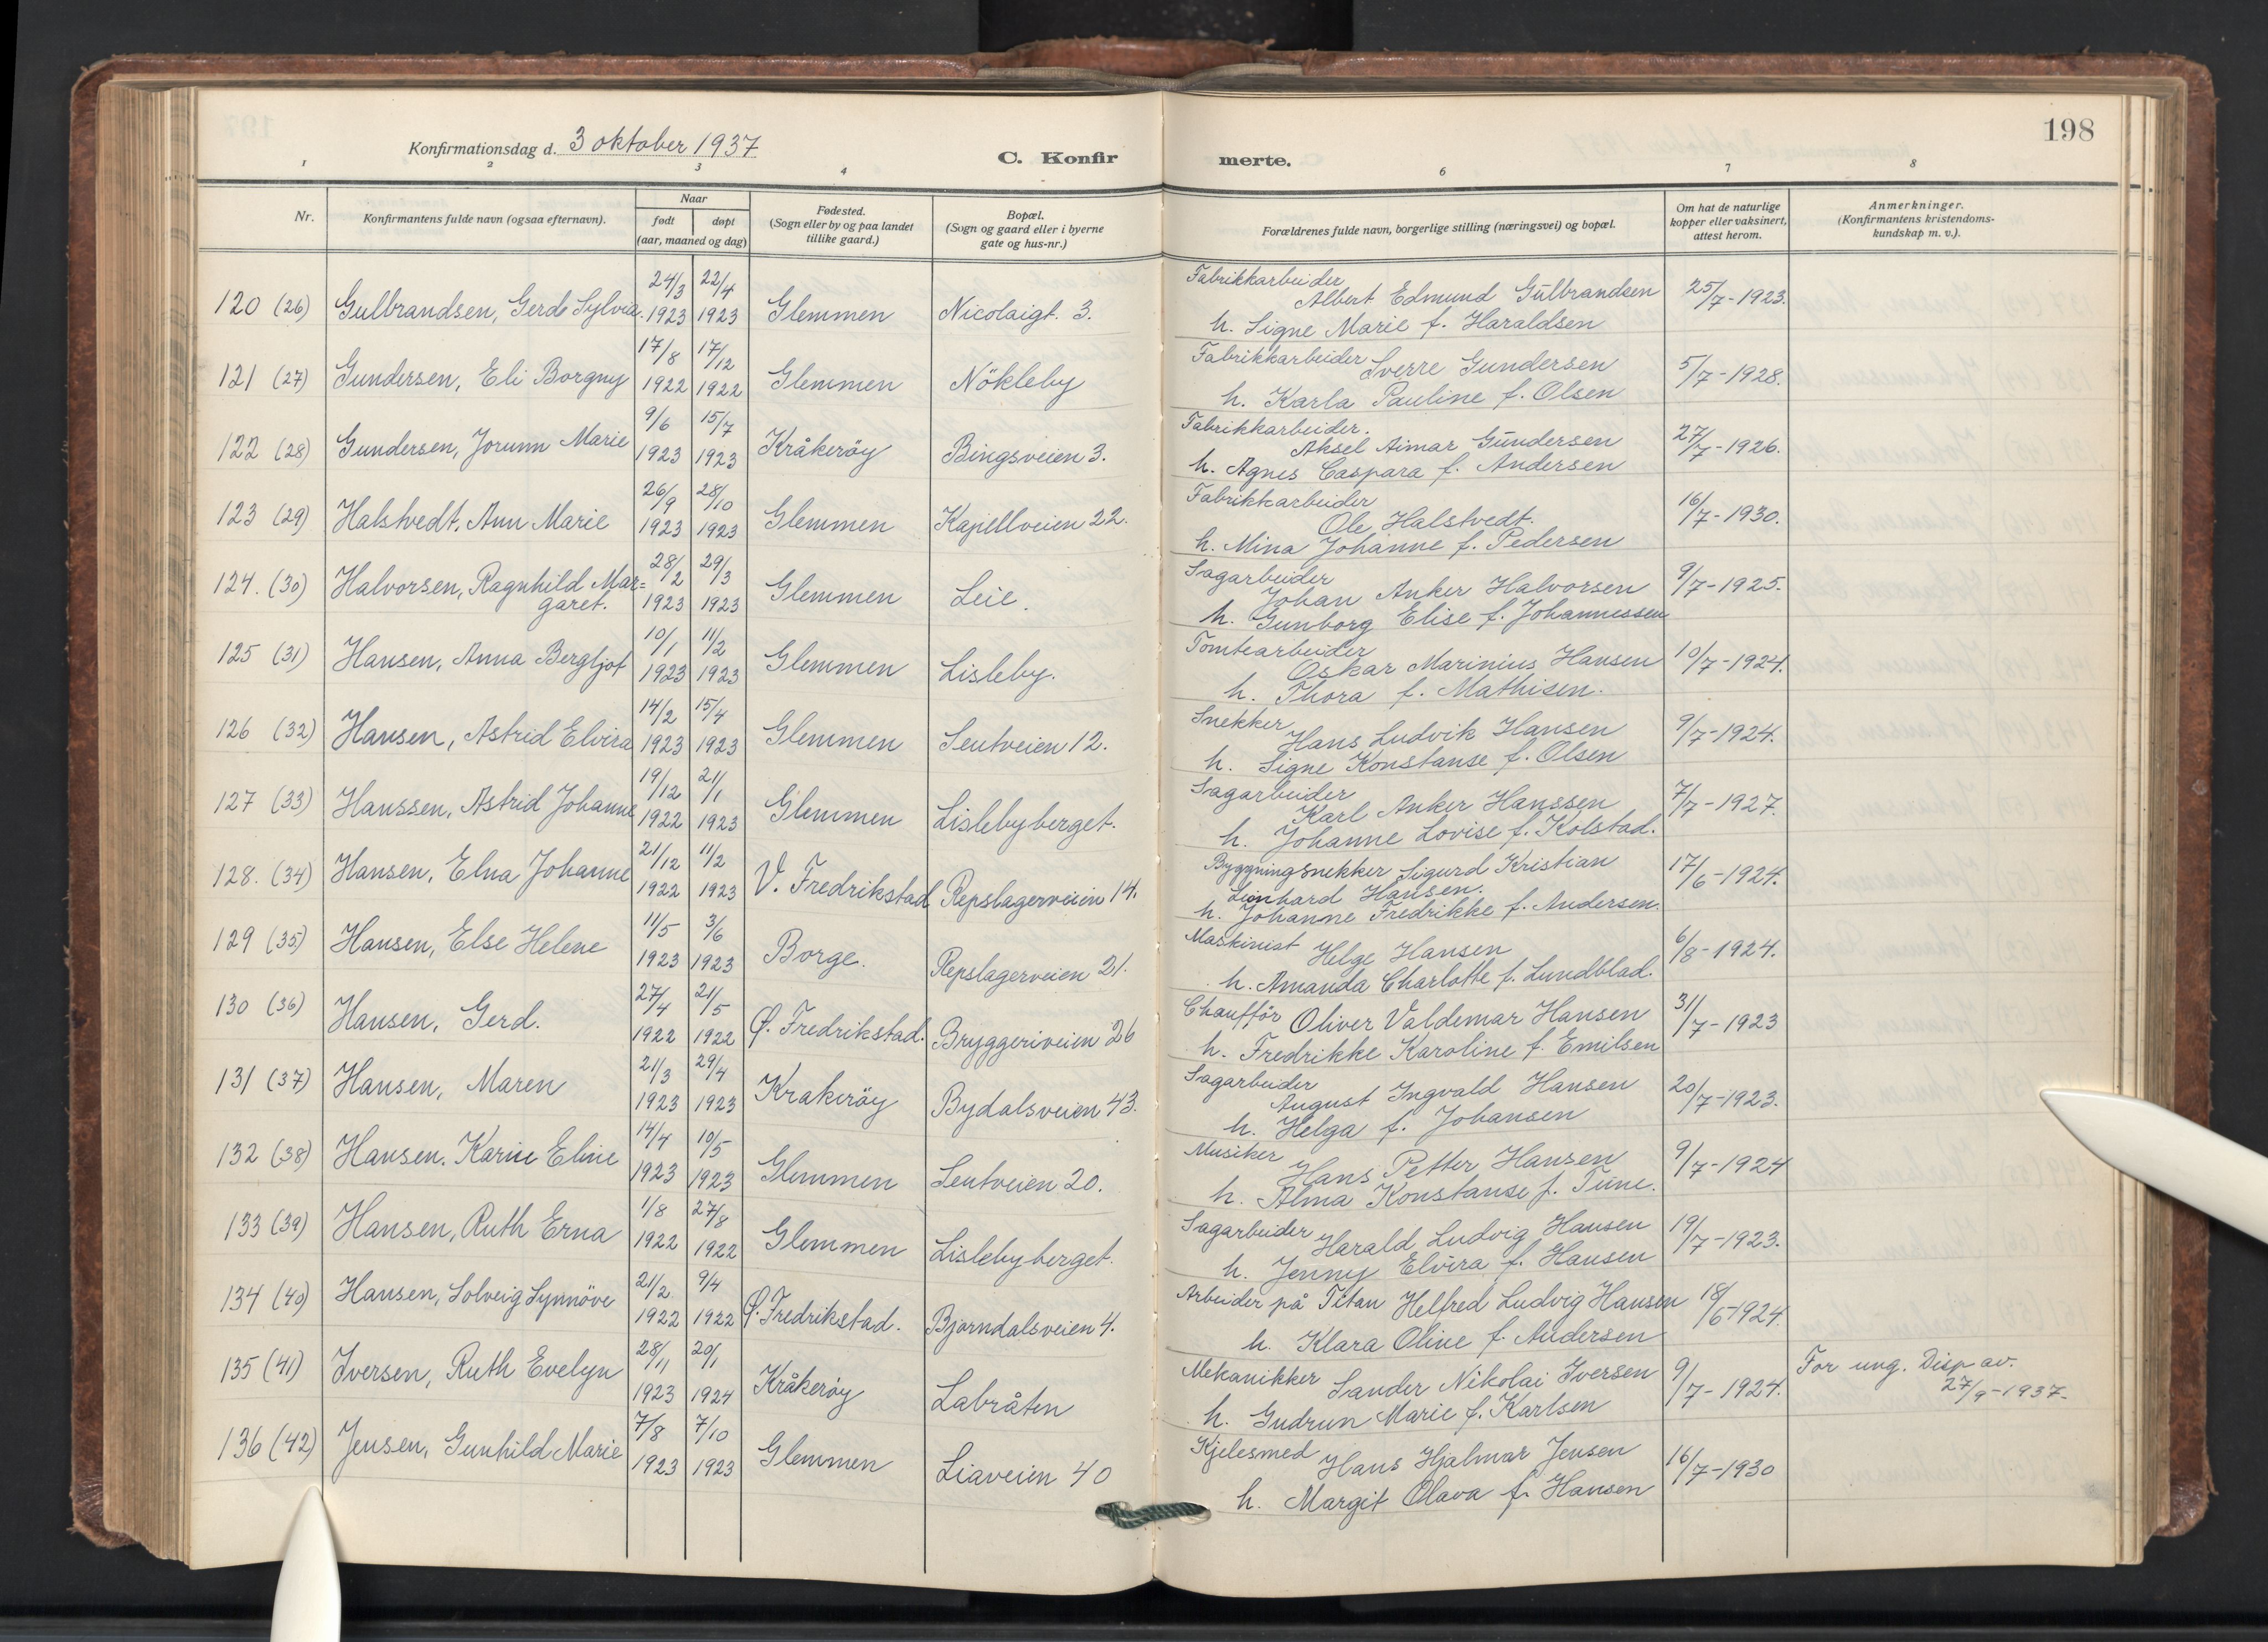 Konfirmationsdag d. 3 oktober 1937
C. Konfir
merte.
198
1
2
3
4
6
7
8
Nr.
Konfirmantens fulde navn (ogsaa efternavn).
Naar
født
døpt
(aar, maaned og dag)
Fødested.
(Sogn eller by og paa landet
tillike gaard.)
Bopæl.
(Sogn og gaard eller i byerne
gate og hus-nr.)
Forældrenes fulde navn, borgerlige stilling (næringsvei) og bopæl.
Om hat de naturlige
kopper eller vaksinert,
attest herom.
Anmerkninger.
(Konfirmantens kristendoms-
kundskap m. v.).
120 (26) Gulbrandsen, Gerd Sylvia. 24/3 1923 22/4 1923 Glemmen Nicolaigt. 3.
Fabrikkarbeider
Albert Edmund Gulbrandsen 25/7-1923.
h. Signe Marie f. Haraldsen
121 (27) Gundersen, Eli Borgny 17/8 1922 17/12 1922 Glemmen Nökleby
Fabrikkarbeider Sverre Gundersen 5/7-1928.
h. Karla Pauline f. Olsen
122 (28) Gundersen, Jorunn Marie 9/6 1923 15/7 1923 Kråkeröy Bingsveien 3.
Fabrikkarbeider.
Aksel Aimar Gundersen 27/7-1926.
h. Agnes Caspara f. Andersen
123 (29) Halstvedt, Ann Marie 26/9 1923 28/10 1923 Glemmen Kapellveien 22.
Fabrikkarbeider
Ole Halstvedt. 16/7-1930.
h. Mina Johanne f. Pedersen
124. (30) Halvorsen, Ragnhild Mar=
garet. 28/2 1923 29/3 1923 Glemmen Leie.
Sagarbeider
Johan Anker Halvorsen 9/7-1925.
h. Gunborg Elise f. Johannessen
125 (31) Hansen, Anna Bergljot 10/1 1923 11/2 1923 Glemmen Lisleby.
Tomtearbeider
Oskar Marinius Hansen 10/7-1924.
h. Thora f. Mathisen.
126 (32) Hansen, Astrid Elvira 14/2 1923 15/4 1923 Glemmen Seutveien 12.
Snekker
Hans Ludvik Hansen 9/7-1924.
h. Signe Konstanse f. Olsen
127 (33) Hanssen, Astrid Johanne 19/12 1922 21/1 1923 Glemmen Lislebyberget.
Sagarbeider
Karl Anker Hanssen 7/7-1927.
h. Johanne Lovise f. Kolstad.
128. (34) Hansen, Elna Johanne 21/12 1922 11/2 1923 V. Fredrikstad Repslagerveien 14.
Byggningsnekker Sigurd Kristian 17/6-1924.
Leonhard Hansen.
h. Johanne Fredrikke f. Andersen.
129 (35) Hansen, Else Helene 11/5 1923 3/6 1923 Borge. Repslagerveien 21.
Maskinist Helge Hansen 6/8-1924.
h. Amanda Charlotte f. Lundblad.
130 (36) Hansen, Gerd. 27/4 1922 21/5 1922 Ø. Fredrikstad. Bryggeriveien 26
Chaufför Oliver Valdemar Hansen 31/7-1923
h. Fredrikke Karoline f. Emilsen
131 (37) Hansen, Maren 21/3 1923 29/4 1923 Krakeröy Bydalsveien 43.
Sagarbeider
August Ingvald Hansen 20/7-1923.
h. Helga f. Johansen
132 (38) Hansen. Karin Eline 14/4 1923 10/5 1923 Glemmen Seutveien 20.
Musiker
Hans Petter Hansen 9/7-1924
h. Alma Konstanse f. Tune.
133 (39) Hansen, Ruth Erna 1/8 1922 27/8 1922 Glemmen Lislebyberget.
Sagarbeider Harald Ludvig Hansen 19/7-1923.
h. Jenny Elvira f. Hansen
134 (40) Hansen, Solveig Synnöve 21/2 1922 9/4 1922 Ø. Fredrikstad. Bjørndalsveien 4.
Arbeider på Titan Helfred Ludvig Hansen 18/6-1924.
h. Klara Oline f. Andersen
135 (41) Iversen, Ruth Evelyn 28/11 1923 20/1 1924 Kråkerøy Labråten
Mekanikker Sander Nikolai Iversen 9/7-1924. For ung. Disp av.
27/9-1937.
h. Gudrun Marie f. Karlsen
136 (42) Jensen, Gunhild Marie 7/8 1923 7/10 1923 Glemmen Liaveien 40
Kjelesmed Hans Hjalmar Jensen 16/7-1930
h. Margit Olava f. Hansen